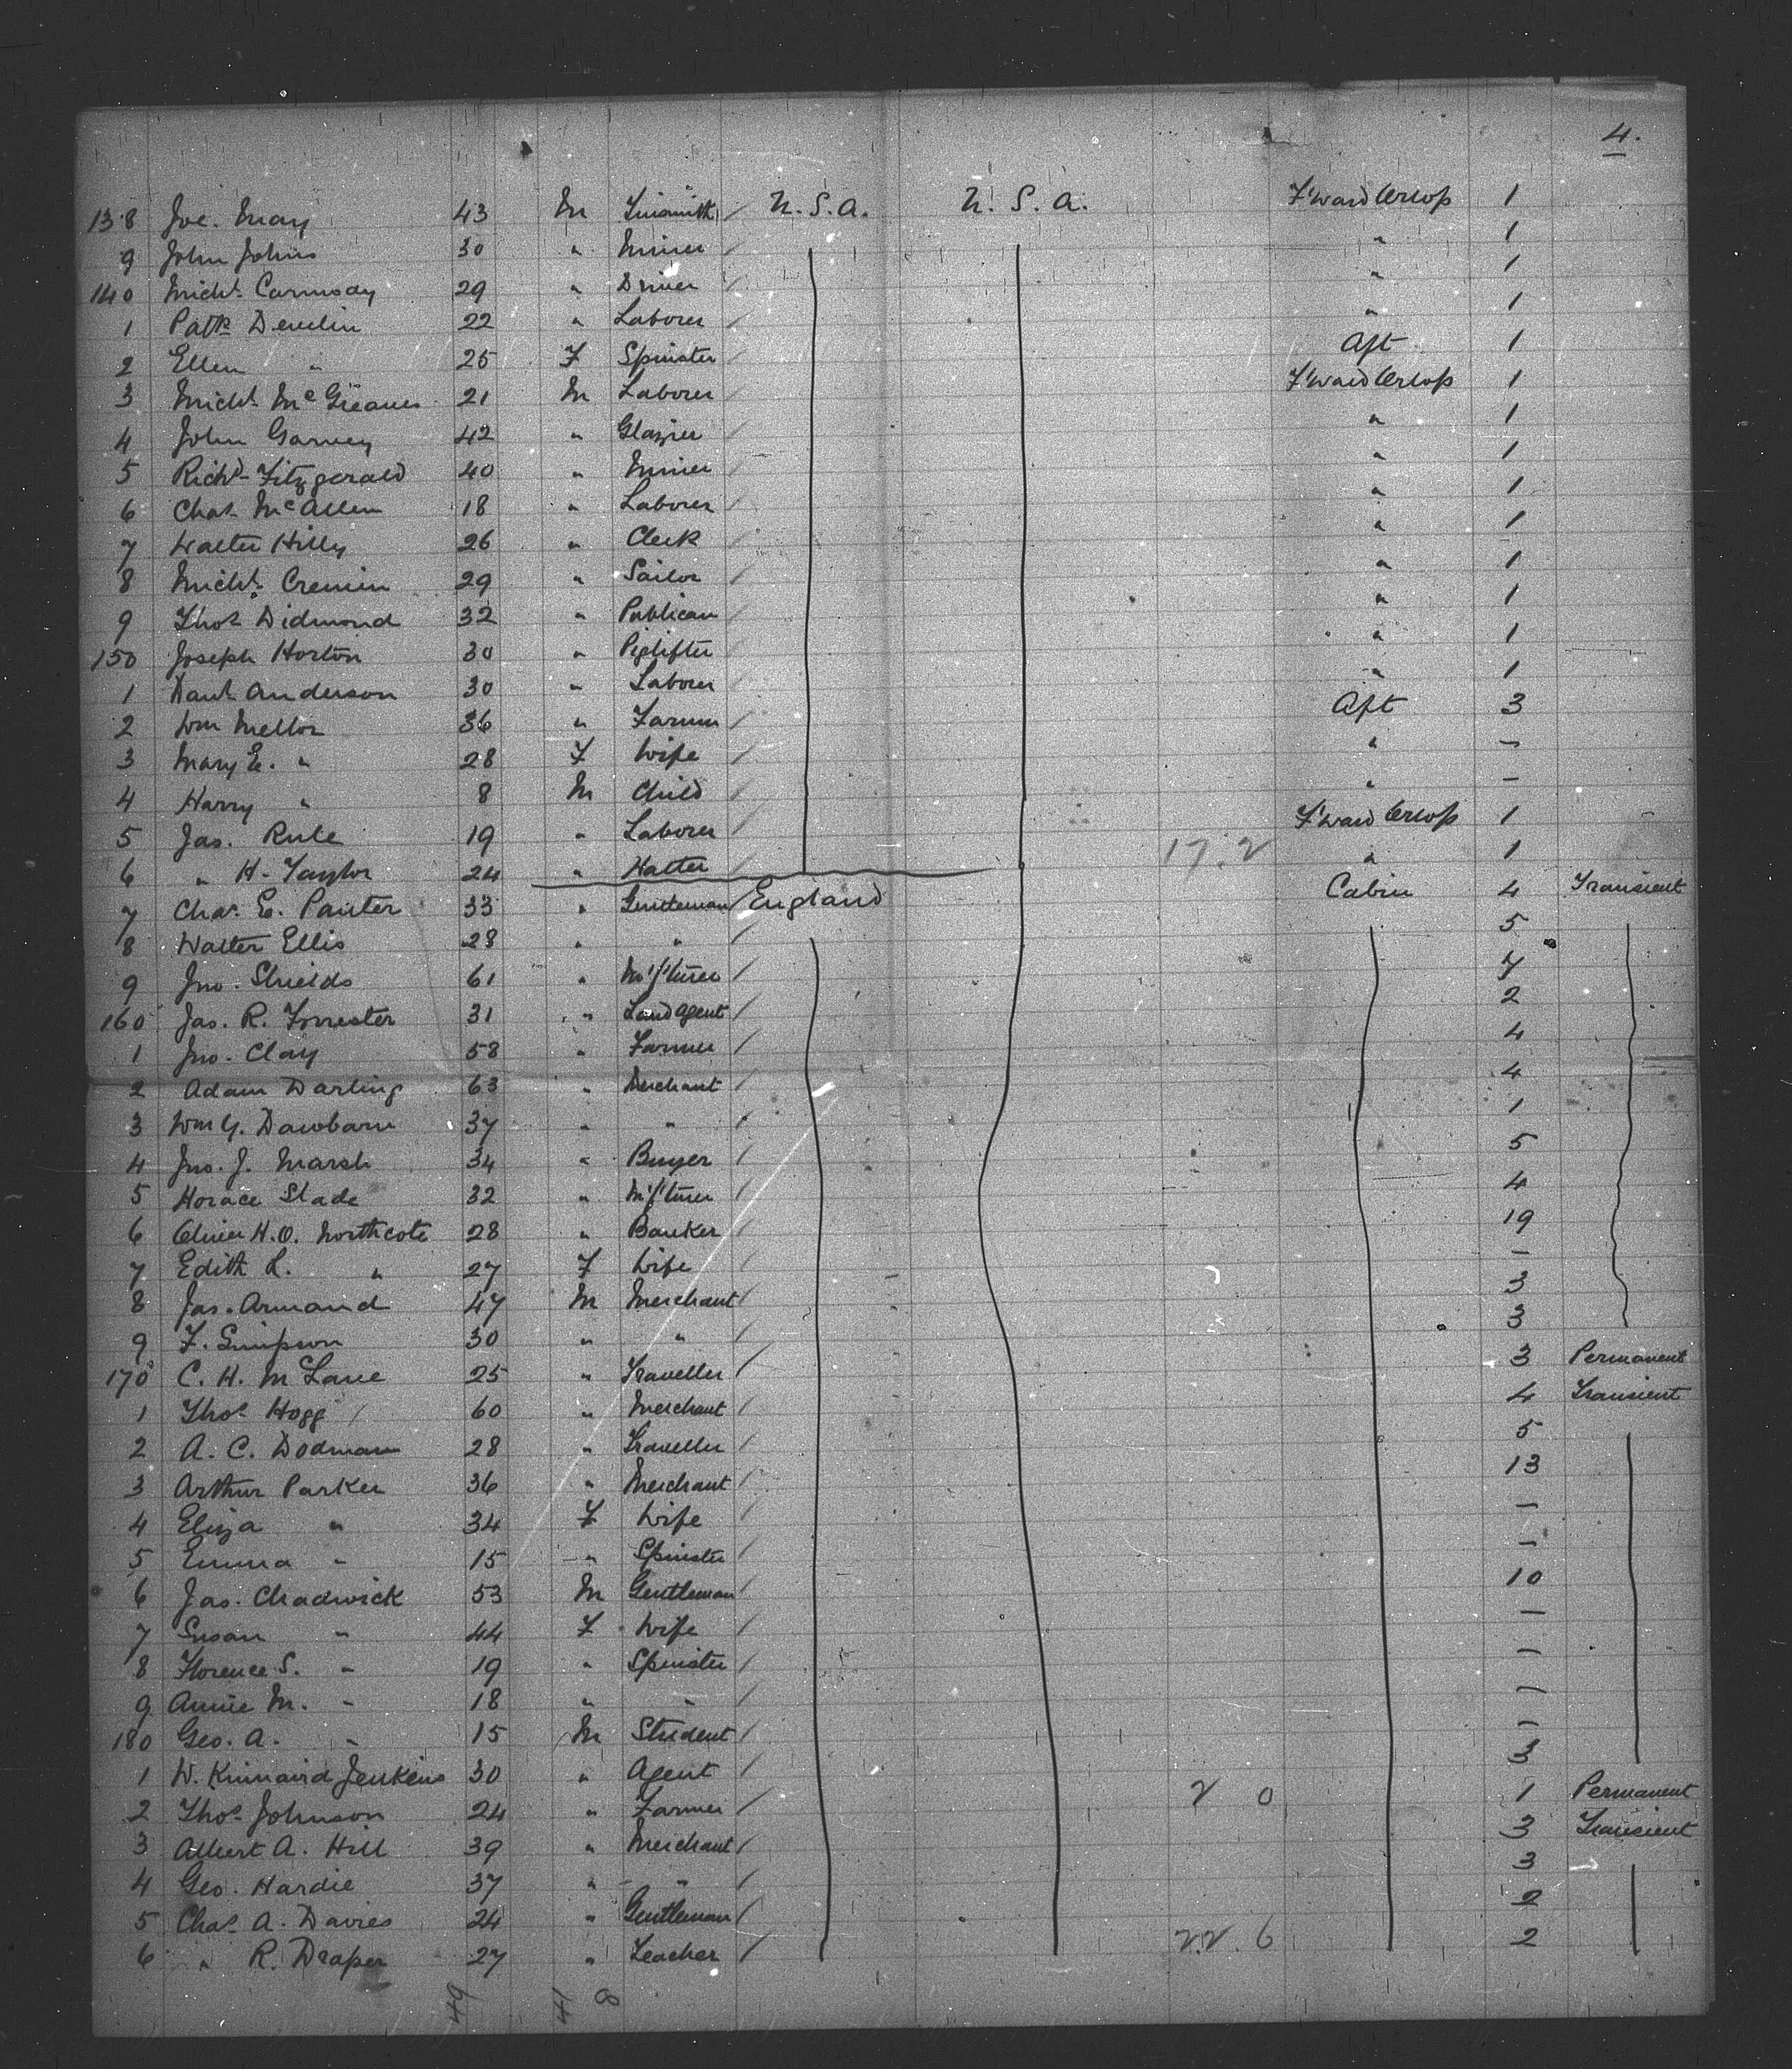 4.
138 Joe. May 43 M Tinsmith / U.S.A. U.S.A. F'ward Orlop 1
9 John Johns 30 " Miner / " 1
140 Michl. Carmody 29 " Driver / " 1
1 Patk Devlin 22 " Laborer / " 1
2 Ellen " 25 F Spinster / Aft 1
3 Michl. McGreaves 21 M Laborer / F'ward Orlop 1
4 John Garvey 42 " Glazier / " 1
5 Richd. Fitzgerald 40 " Miner / " 1
6 Chas. McAllen 18 " Laborer / " 1
7 Walter Hilly 26 " Clerk / " 1
8 Michl. Cremin 29 " Sailor / " 1
9 Thos. Didmond 32 " Publican / " 1
150 Joseph Horton 30 " Piglifter / " 1
1 Danl. Anderson 30 " Laborer / " 1
2 Wm Mellor 36 " Farmer / Aft 3
3 Mary E. " 28 F Wife / " -
4 Harry " 8 M Child / " -
5 Jas. Rule 19 " Laborer / F'ward Orlop 1
6 " H. Taylor 24 " Hatter / 17.2 " 1
7 Chas. E. Panter 33 " Gentleman / England Cabin 4 Transient
8 Walter Ellis 28 " " / 5
9 Jno. Shields 61 " M'f'turer / 7
160 Jas. R. Forrester 31 " Land Agent / 2
1 Jno. Clay 58 " Farmer / 4
2 Adam Darling 63 " Merchant / 4
3 Wm G. Dawbarn 37 " " / 1
4 Jno. J. Marsh 34 " Buyer / 5
5 Horace Slade 32 " M'f'turer / 4
6 Oliver H.O. Northcote 28 " Banker / 19
7 Edith L. " 27 F Wife / -
8 Jas. Armand 47 M Merchant / 3
9 F. Simpson 30 " " / 3
170 C. H. M Lane 25 " Traveller / 3 Permanent
1 Thos. Hogg 60 " Merchant / 4 Transient
2 A. C. Dodman 28 " Traveller / 5
3 Arthur Parker 36 " Merchant / 13
4 Eliza " 34 F Wife / -
5 Emma " 15 " Spinster / -
6 Jas. Chadwick 53 M Gentleman / 10
7 Susan " 44 F Wife / -
8 Florence S. " 19 " Spinster / -
9 Annie M. " 18 " " / -
180 Geo. A. " 15 M Student / -
1 W. Kinnaird Jenkins 30 " Agent / 3
2 Thos. Johnson 24 " Farmer / 2 0 1 Permanent
3 Albert A. Hill 39 " Merchant / 3 Transient
4 Geo. Hardie 37 " " / 3
5 Chas. A. Davies 24 " Gentleman / 2
6 " R. Draper 27 " Teacher / 22.6 2
49 41 8